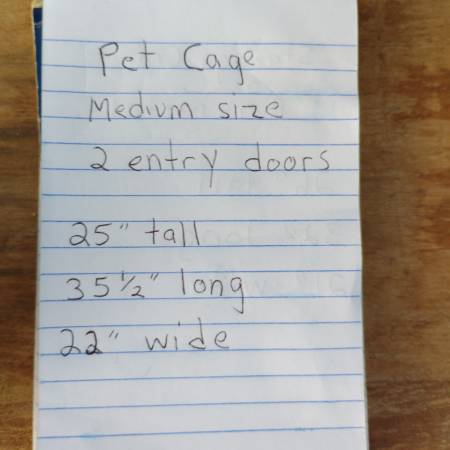 Pet Cage
Medium size
2 entry doors
25" tall
35 1/2" long
22" wide